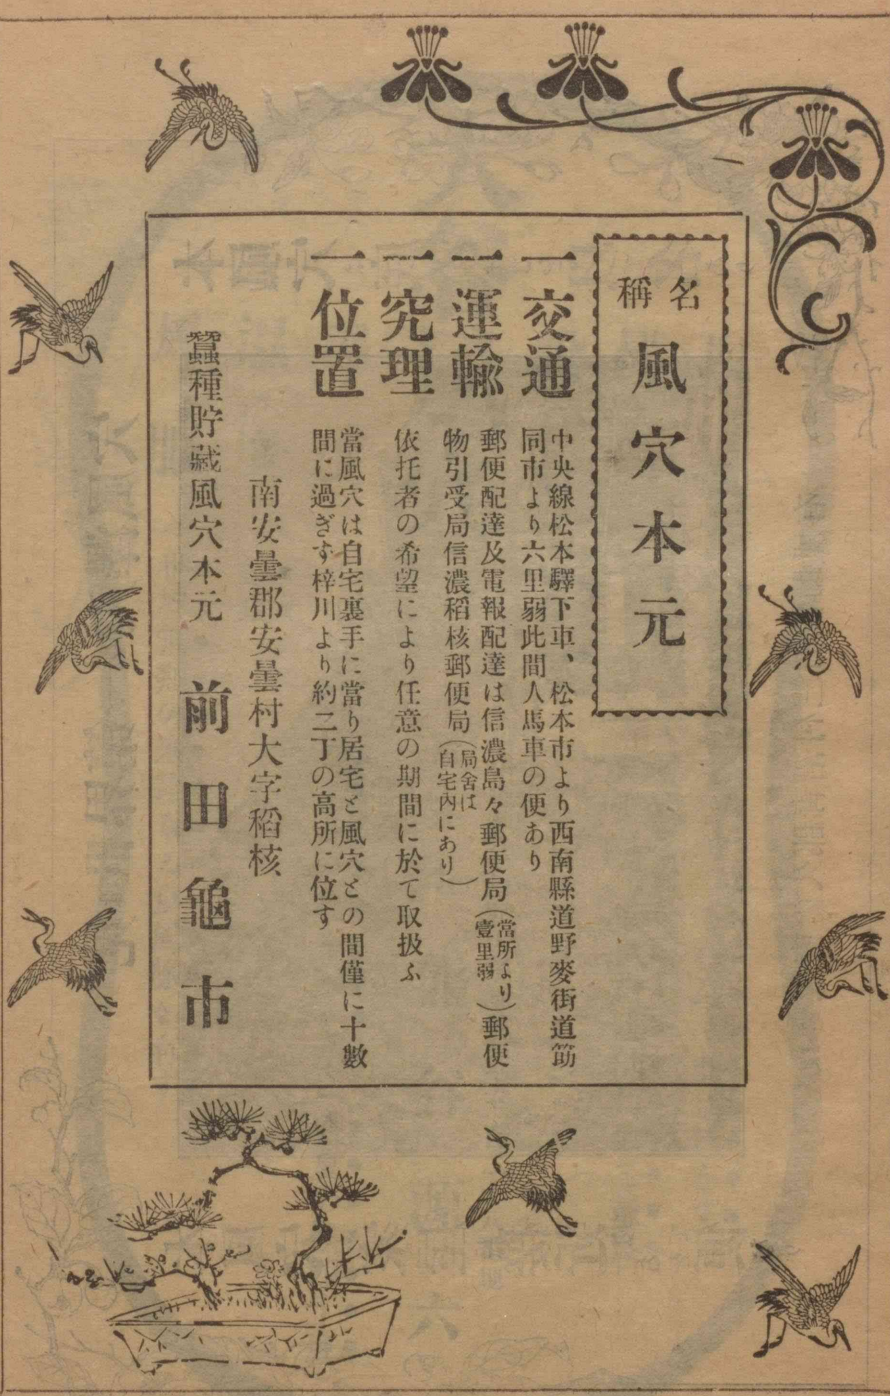 名稱 風穴本元
一 交通 中央線松本驛下車、松本市より西南縣道野麥街道筋
同市より六里弱此間人馬車の便あり
一 運輸 郵便配達及電報配達は信濃島々郵便局(當所より壹里弱)郵便
物引受局信濃稻核郵便局(局舍は自宅內にあり)
一 究理 依托者の希望により任意の期間に於て取扱ふ
一 位置 當風穴は自宅裏手に當り居宅と風穴との間僅に十數
間に過ぎす梓川より約二丁の高所に位す
南安曇郡安曇村大字稻核
蠶種貯藏風穴本元 前田龜市